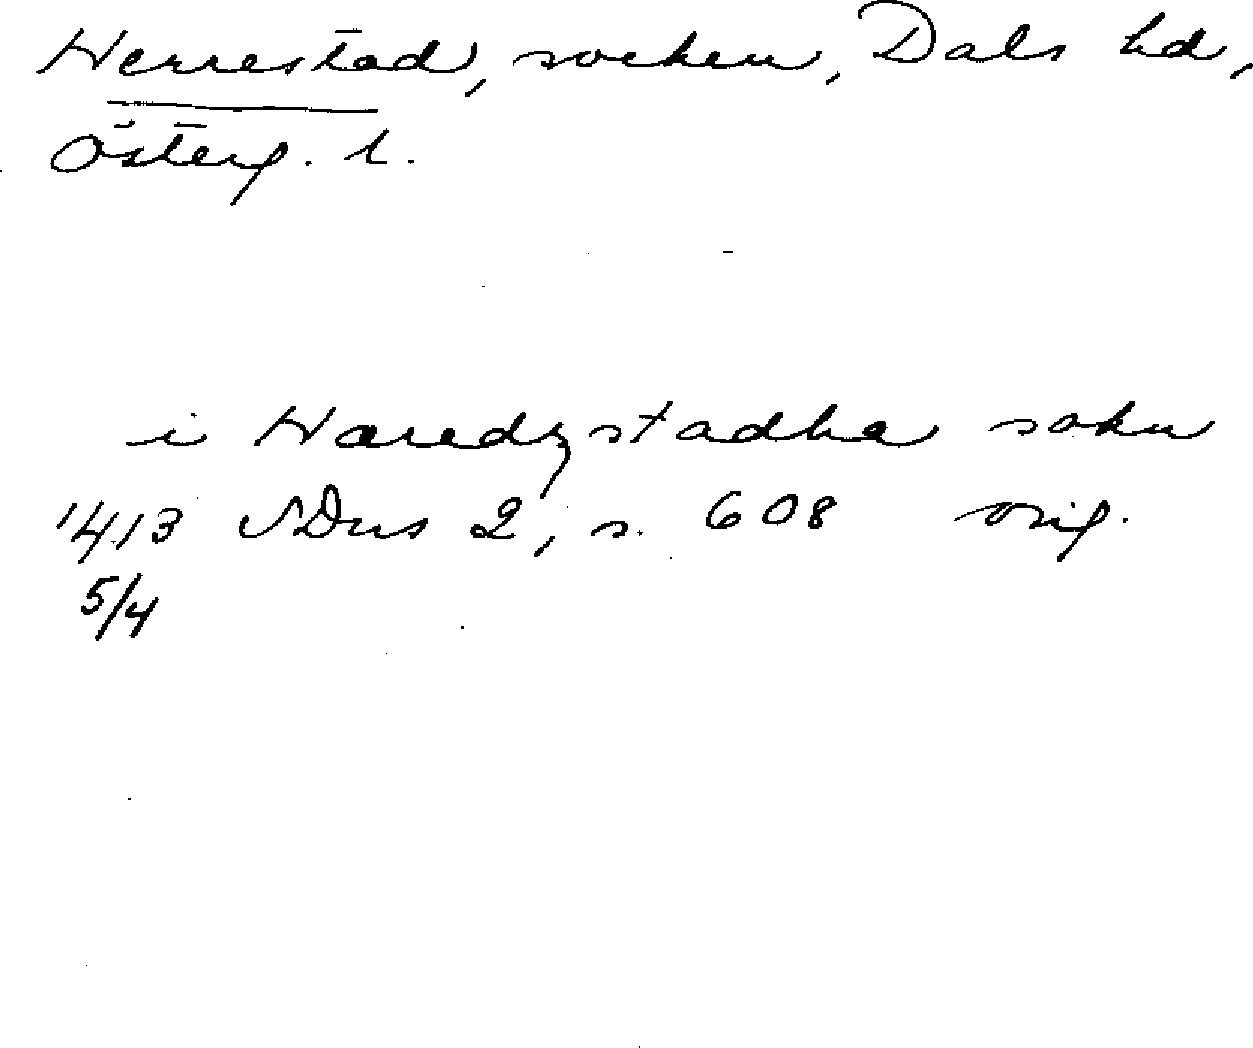 Herrestad, socken, Dals hd,
Österg. l.
i Haredzstadha sokn
1413 SDns 2, s. 608 orig.
5/4